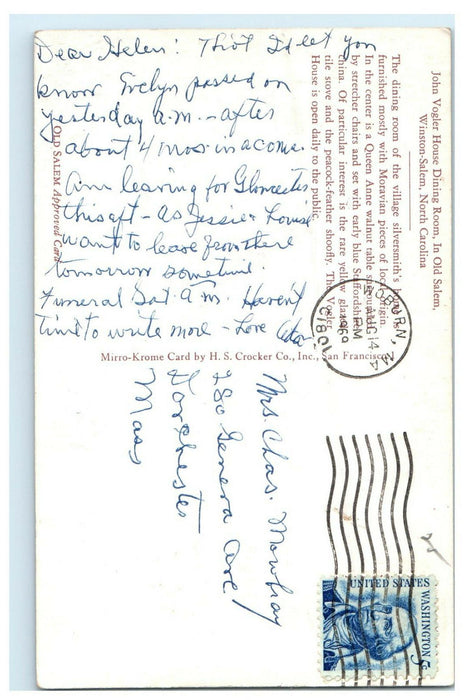 Dear Helen: Thot I'd let you
know Evelyn passed on
yesterday a.m. - after
about 4 mos. in a coma.
Am leaving for Gloucester
this aft - as Jessie + Louise
want to leave from there
tomorrow sometime.
Funeral Sat. a.m. Haven't
time to write more - Love
John Vogler House Dining Room, In Old Salem,
Winston-Salem, North Carolina
The dining room of the village silversmith's house is
furnished mostly with Moravian pieces of local origin.
In the center is a Queen Anne walnut table surrounded
by stretcher chairs and set with early blue Staffordshire
china. Of particular interest is the rare yellow glazed
tile stove and the peacock-feather shoofly. The Vogler
House is open daily to the public.
OLD SALEM Approved Card
Mirro-Krome Card by H. S. Crocker Co., Inc., San Francisco
Mrs. Chas. Mowbray
280 Geneva Ave
Dorchester
Mass
WOBURN
PM
AUG 14
1969
01801
UNITED STATES
WASHINGTON 5c
25